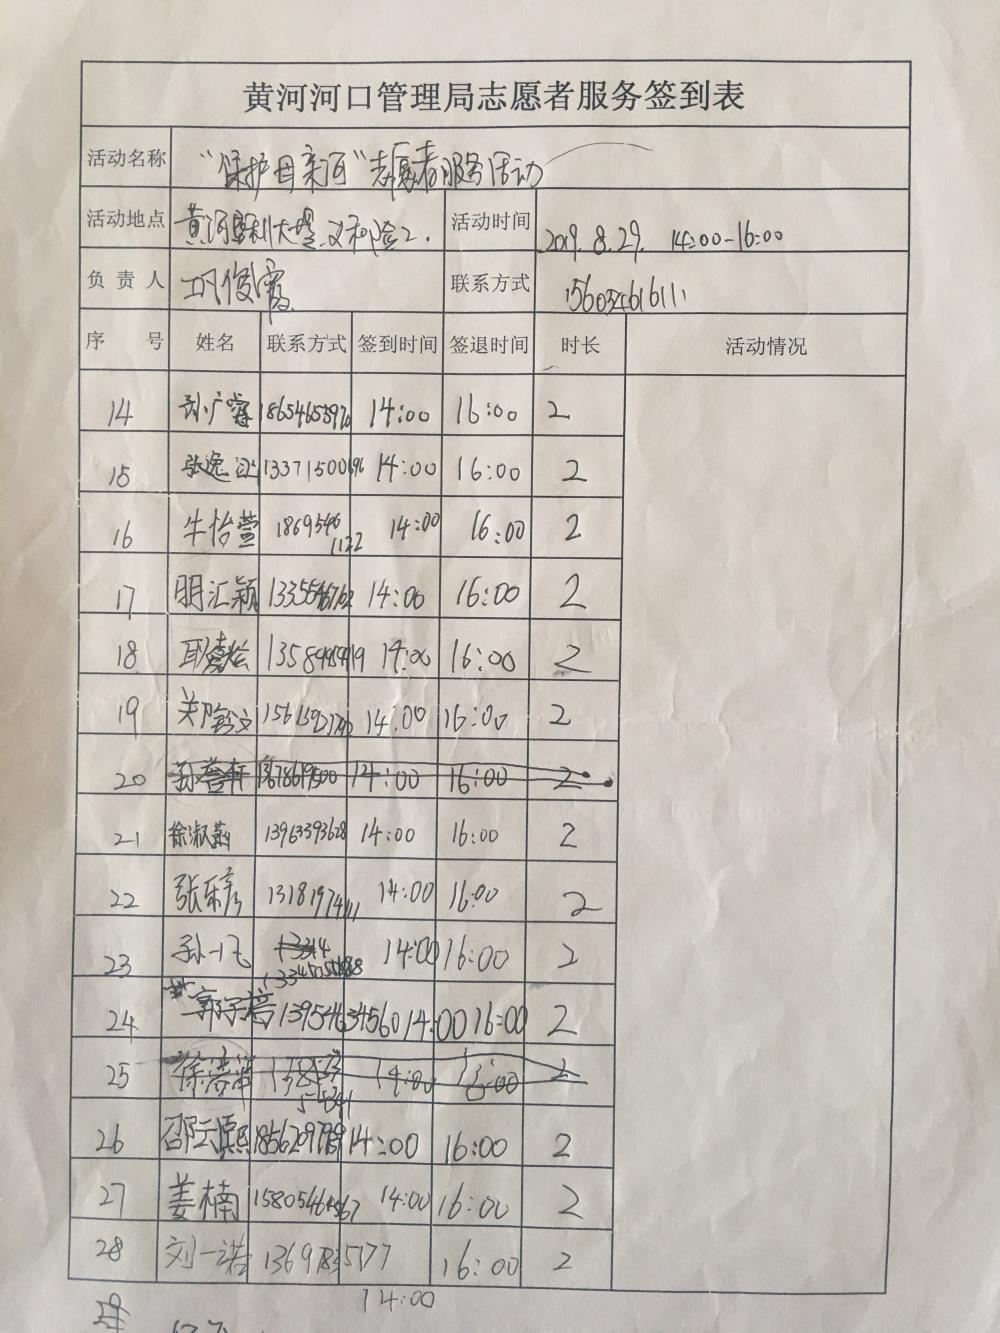 黄河河口管理局志愿者服务签到表
活动名称 "保护母亲河"志愿者服务活动
活动地点 黄河垦利大堤.义和险工. 活动时间 2019.8.29. 14:00-16:00
负责人 巩俊霞 联系方式 15603461611
序号 姓名 联系方式 签到时间 签退时间 时长 活动情况
14 孙广睿 18654653970 14:00 16:00 2
15 张逸 13371500696 14:00 16:00 2
16 牛怡萱 18695461122 14:00 16:00 2
17 明汇颖 14:00 16:00 2
18 14:00 16:00 2
19 关晗文 14:00 16:00 2
20 孙誉轩 13678619500 14:00 16:00 2
21 徐淑 13963393628 14:00 16:00 2
22 张乐彦 13181974111 14:00 16:00 2
23 孙一飞 14:00 16:00 2
24 郭子榕 13954634560 14:00 16:00 2
25 徐 14:00 16:00 2
26 邵云熙 14:00 16:00 2
27 姜楠 15805464567 14:00 16:00 2
28 刘一诺 13697835177 16:00 2
14:00